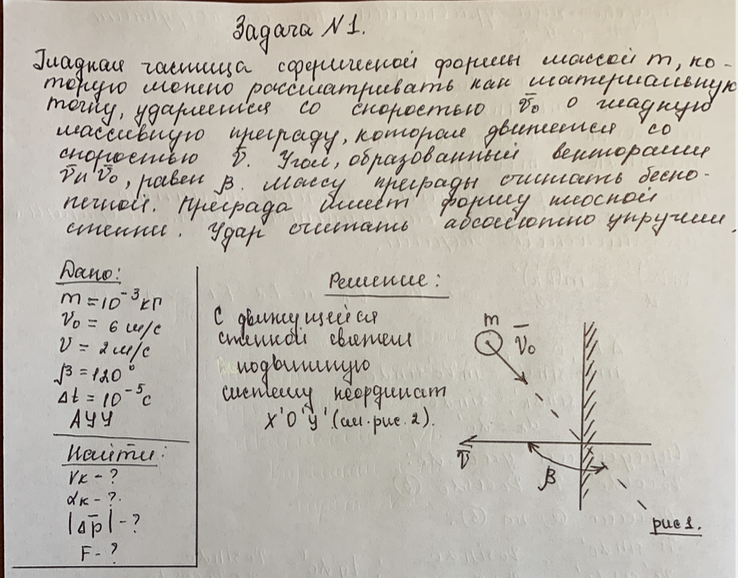 Задача №1.
Гладкая частица сферической формы массой m, ко-
торую можно рассматривать как материальную
точку, ударяется со скоростью v̄₀ о гладкую
массивную преграду, которая движется со
скоростью v̄. Угол, образованный векторами
v̄ и v̄₀, равен β. Массу преграды считать беско-
нечной. Преграда имеет форму плоской
стенки. Удар считать абсолютно упругим.
Дано:
m = 10⁻³ кг
v₀ = 6 м/с
v = 2 м/с
β = 120°
Δt = 10⁻⁵ с
АУУ
Найти:
vк - ?
αк - ?
|Δp̄| - ?
F - ?
Решение:
С движущейся
стенкой свяжем
подвижную
систему координат
X'O'Y' (см. рис. 2).
m
v̄₀
v̄
β
рис 1.